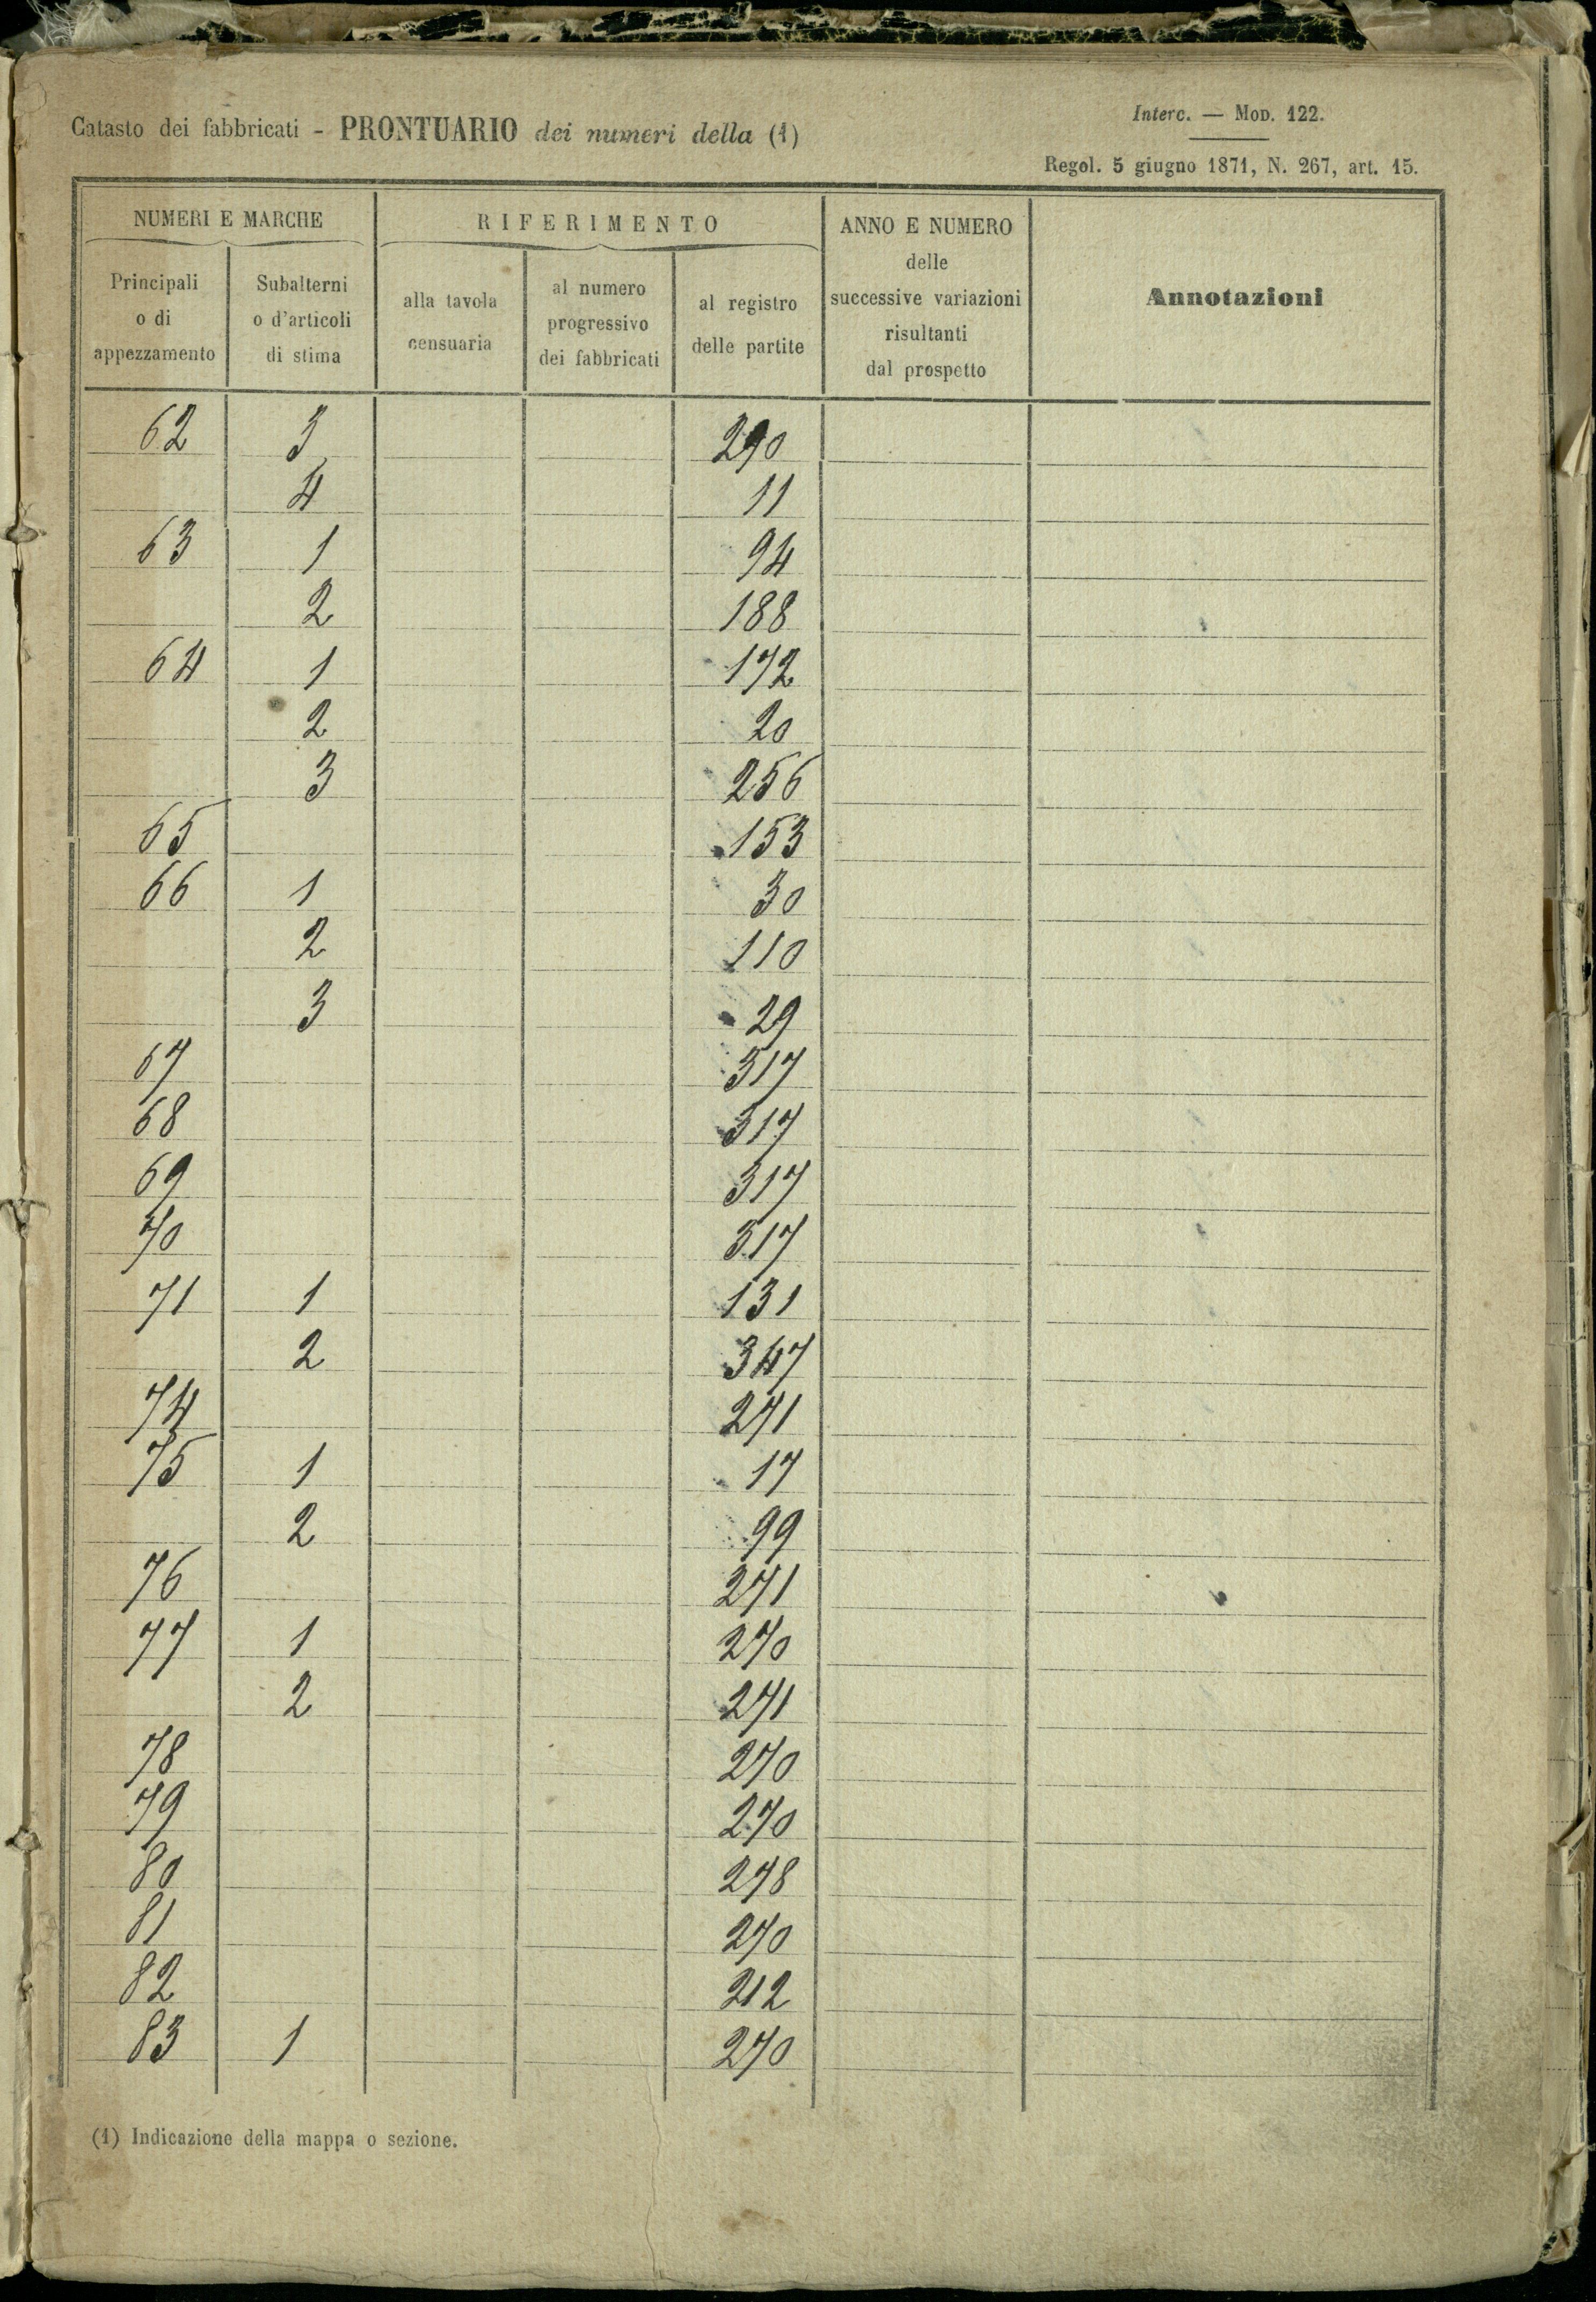 Catasto dei fabbricati - PRONTUARIO dei numeri della (1)
Interc. — Mod. 122.
Regol. 5 giugno 1871, N. 267, art. 15.
NUMERI E MARCHE
RIFERIMENTO
ANNO E NUMERO
delle
successive variazioni
risultanti
dal prospetto
Annotazioni
Principali
o di
appezzamento
Subalterni
o d'articoli
di stima
alla tavola
censuaria
al numero
progressivo
dei fabbricati
al registro
delle partite
62 3 290
4 11
63 1 94
2 188
64 1 172
2 20
3 256
65 153
66 1 30
2 110
3 29
67 317
68 317
69 317
70 317
71 1 131
2 347
74 271
75 1 17
2 99
76 271
77 1 270
2 271
78 270
79 270
80 278
81 270
82 212
83 1 270
(1) Indicazione della mappa o sezione.